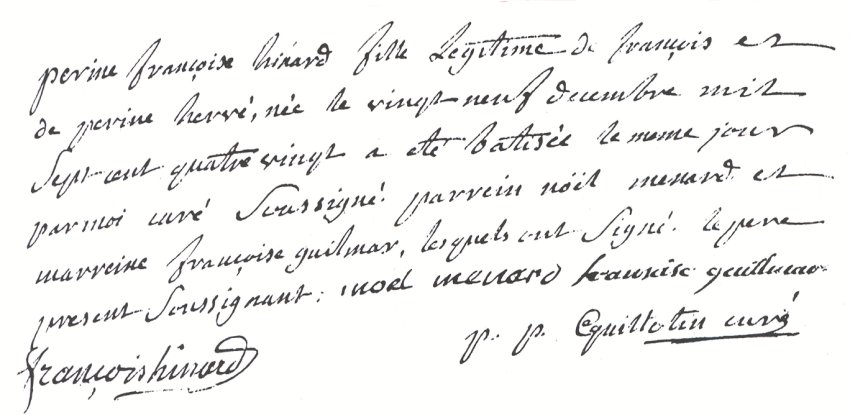 perine françoise hinard fille Legitime de françois et
de perine hervé, née le vingt neuf decembre mil
Sept cent quatre vingt a eté batisée le meme jour
par moi curé Soussigné. parrein nöel menard et
marreine françoise guilmar, lesquels ont Signé. le pere
present Soussignant: noel menard francoise guillmar
françois hinard p. p. Cguillotin curé